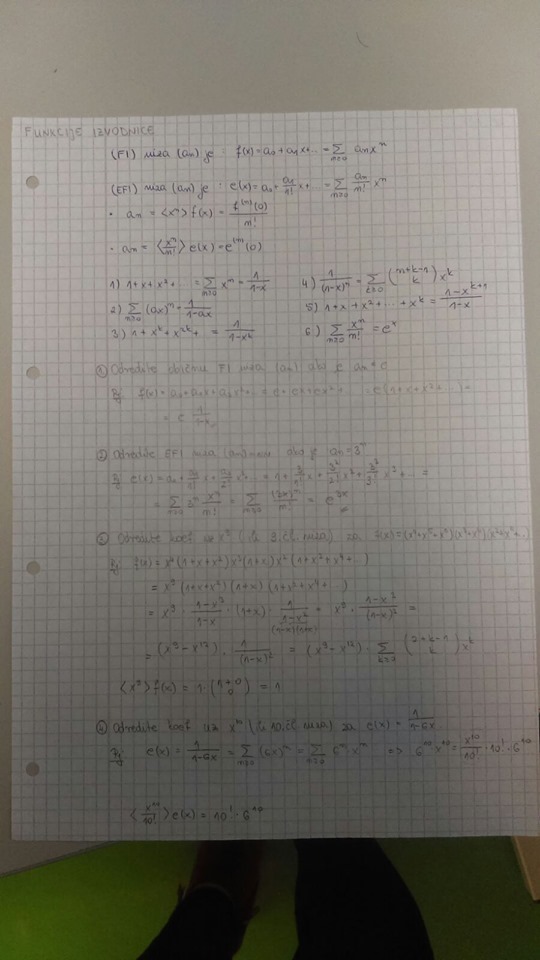 FUNKCIJE IZVODNICE
(FI) niza (an) je : f(x) = a₀ + a₁x + ... = ∑_{n≥0} aₙxⁿ
(EFI) niza (an) je : e(x) = a₀ + a₁/1! x + ... = ∑_{n≥0} aₙ/n! xⁿ
• aₙ = <xⁿ> f(x) = f⁽ⁿ⁾(0)/n!
• aₙ = <xⁿ/n!> e(x) = e⁽ⁿ⁾(0)
1) 1+x+x²+... = ∑_{n≥0} xⁿ = 1/(1-x)
2) ∑_{n≥0} (ax)ⁿ = 1/(1-ax)
3) 1+xᵏ+x²ᵏ+ = 1/(1-xᵏ)
4) 1/(1-x)ⁿ = ∑_{k≥0} (n+k-1 k) xᵏ
5) 1+x+x²+...+xᵏ = (1-xᵏ⁺¹)/(1-x)
6) ∑_{n≥0} xⁿ/n! = eˣ
① Odredite običnu FI niza (an) ako je an = c
Rj f(x) = a₀+a₁x+a₂x²+... = c+cx+cx²+ ... c(1+x+x²+...) =
= c 1/(1-x)
② Odredite EFI niza (an) ako je an = 3ⁿ
Rj e(x) = a₀ + a₁/1! x + a₂/2! x²... = 1 + 3/1! x + 3²/2! x² + 3³/3! x³ + ... =
= ∑_{n≥0} 3ⁿ xⁿ/n! = ∑_{n≥0} (3x)ⁿ/n! = e³ˣ
Odredite koef uz x⁹ za
= x⁹ (1+x+x²) (1+x) (1+x²+x⁴+...)
= x⁹ · (1-x³)/(1-x) · (1+x) · 1/(1-x²) = x⁹ · (1-x³)/(1-x)² =
(1-x)(1+x)
= (x⁹ - x¹²) · 1/(1-x)² = (x⁹ - x¹²) · ∑_{k≥0} (2+k-1 k) xᵏ
<x⁹> f(x) = 1 · (1+0 0) = 1
④ Odredite koef uz x¹⁰ za e(x) = 1/(1-6x)
Rj e(x) = 1/(1-6x) = ∑_{n≥0} (6x)ⁿ = ∑_{n≥0} 6ⁿ · xⁿ => 6¹⁰ · x¹⁰ = x¹⁰/10! · 10! · 6¹⁰
<x¹⁰/10!> e(x) = 10! · 6¹⁰